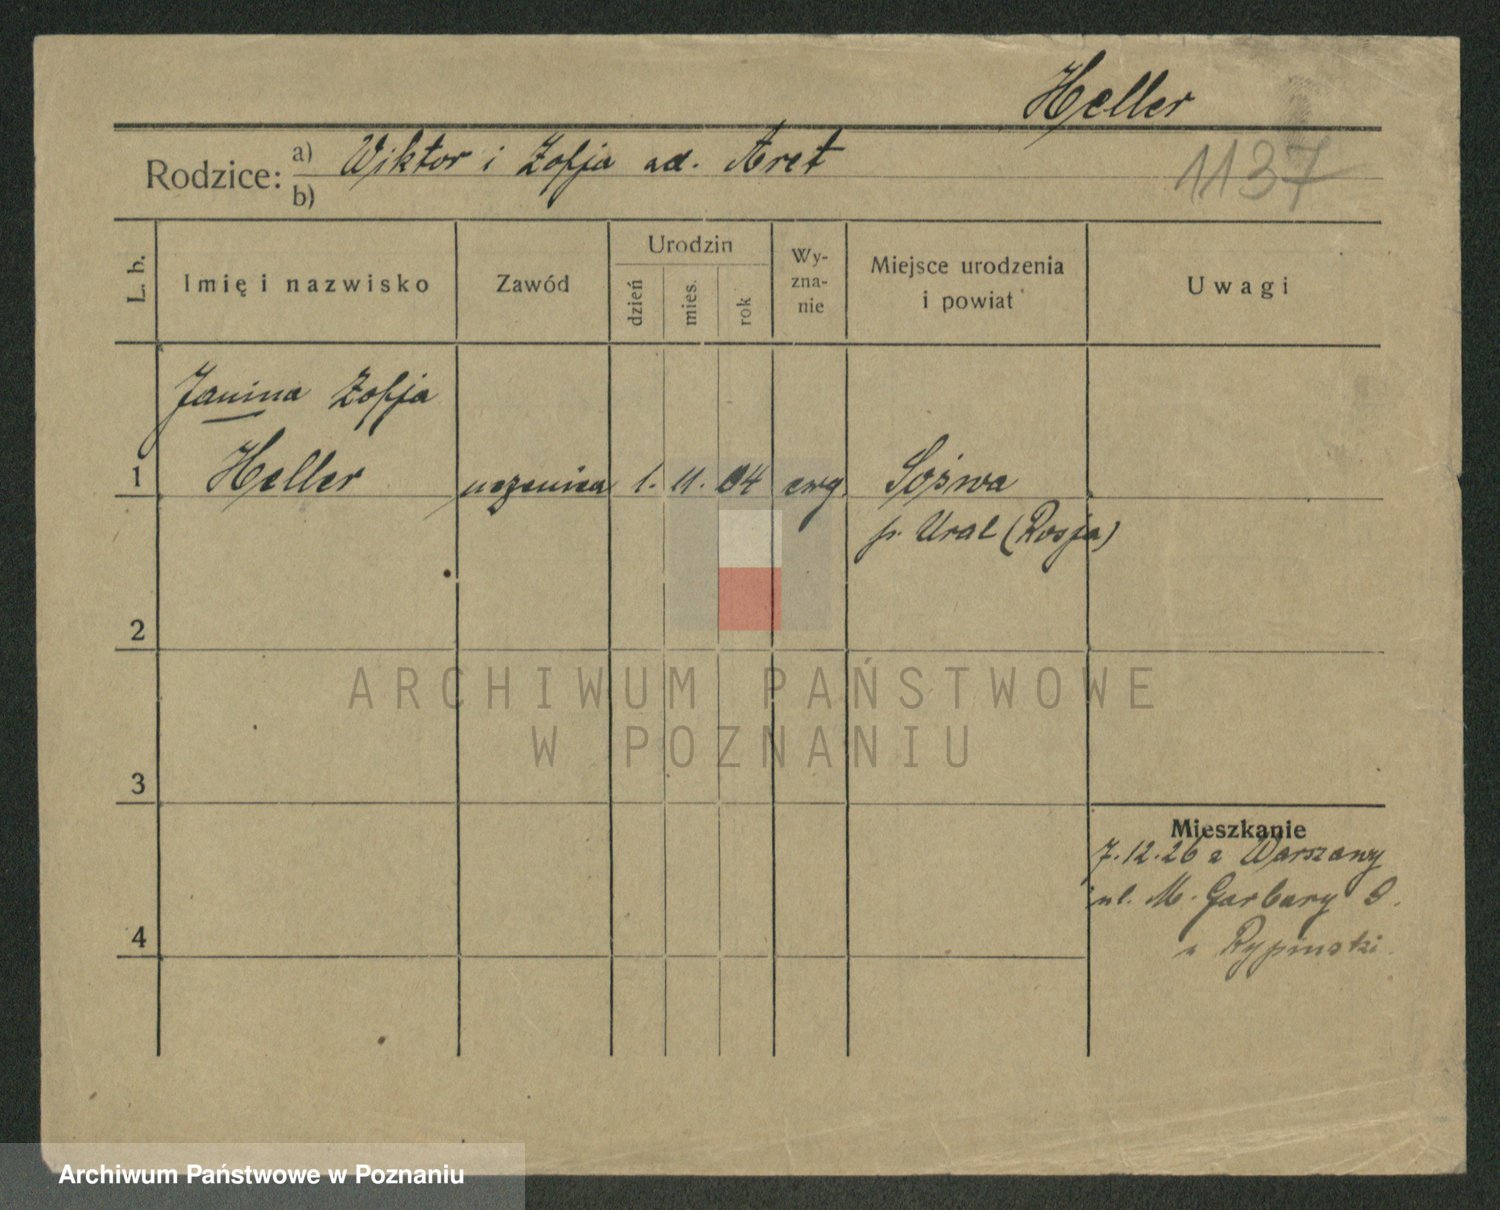 Heller
1137
Rodzice: a) Wiktor i Zofja ad. Aret
b)
L. b.
Imię i nazwisko
Zawód
Urodzin
dzień
mies.
rok
Wy-
zna-
nie
Miejsce urodzenia
i powiat
Uwagi
Janina Zofja
1 Heller uczenica 1. 11. 04 ewg. Sośwa
p. Ural (Rosja)
2
ARCHIWUM PAŃSTWOWE
W POZNANIU
3
Mieszkanie
7.12.26 z Warszawy
ul. M. Garbary
4
Rypinski.
Archiwum Państwowe w Poznaniu